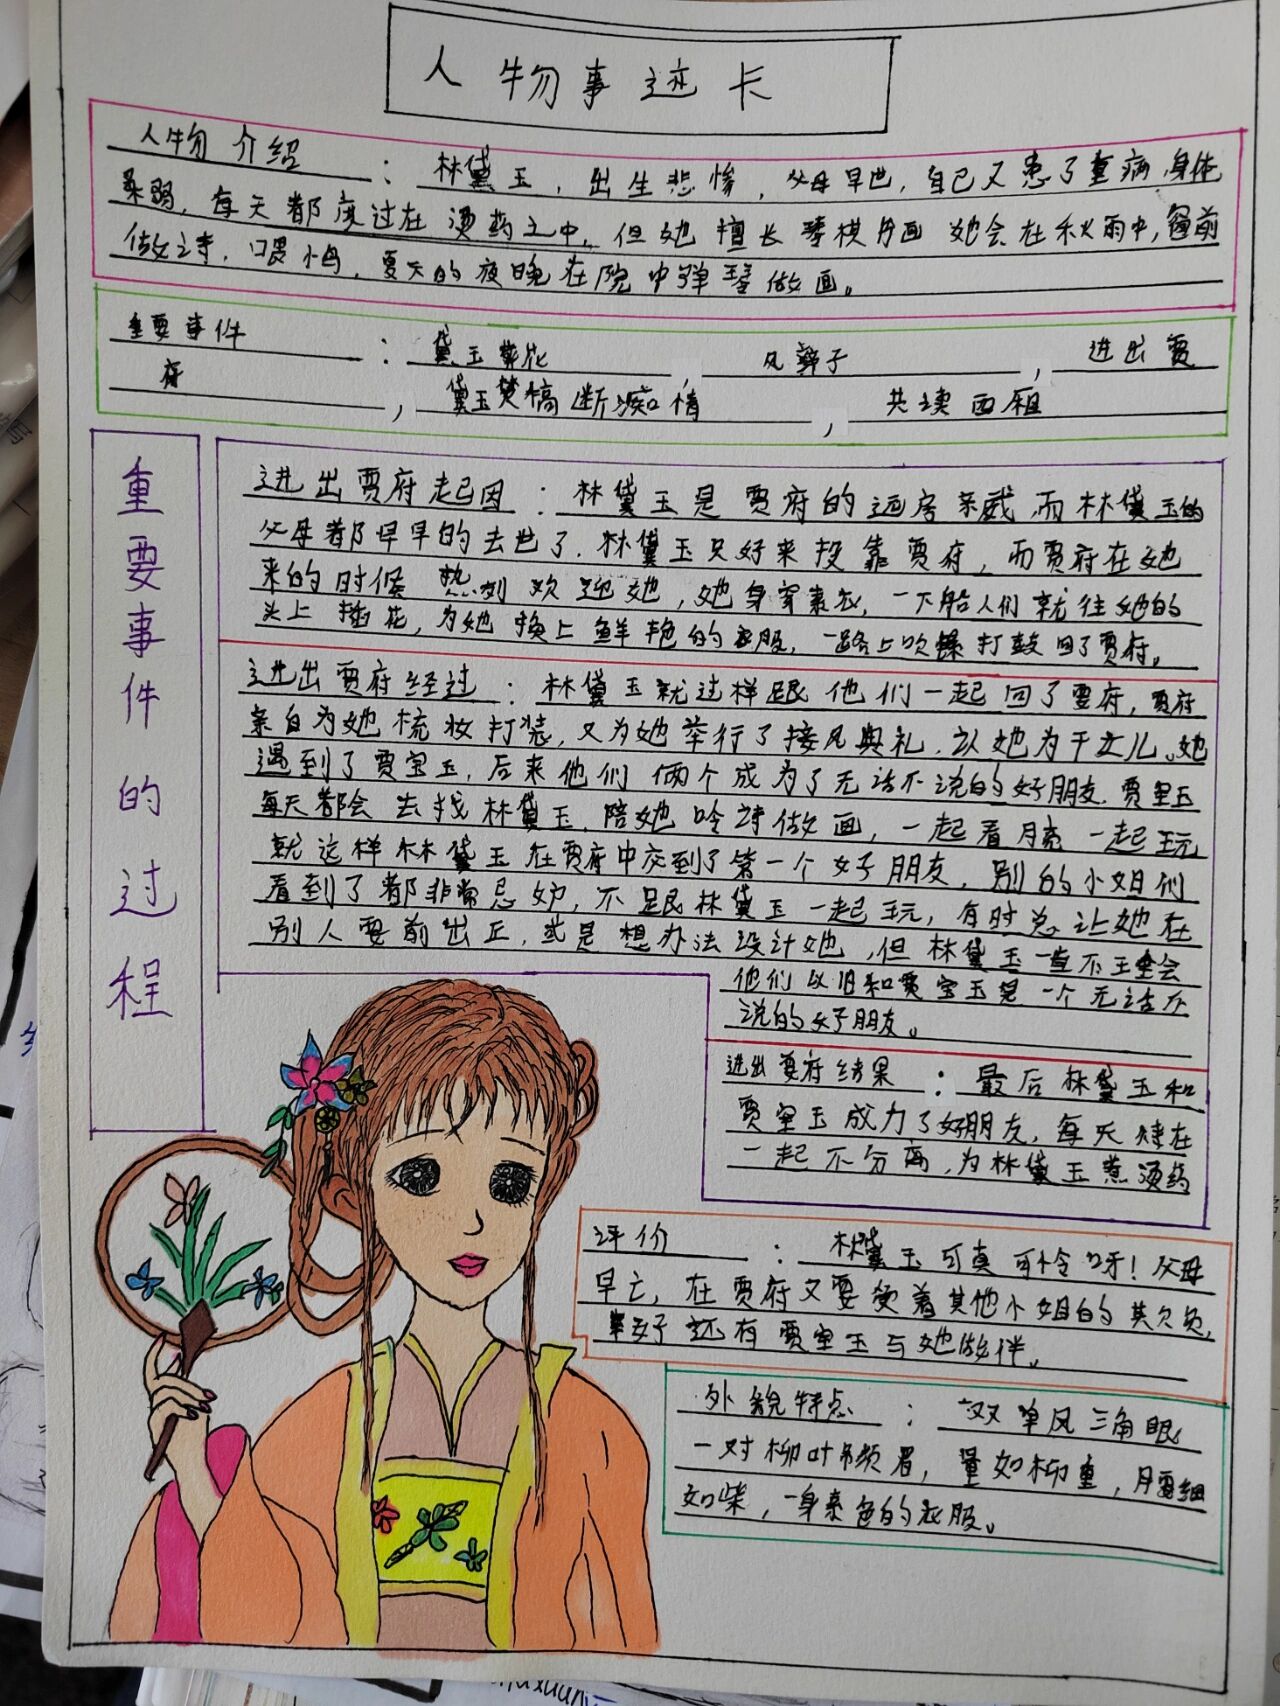 人物事迹卡
人物介绍：林黛玉，出生悲惨，父母早世，自己又患了重病，身体
柔弱，每天都度过在烫药之中，但她擅长琴棋月画 她会在秋雨中，窗前
做诗，喂鸟，夏天的夜晚在院中弹琴做画。
重要事件：黛玉葬花，风辩子，进出贾
府，黛玉焚槁断痴情，共读西厢
重要事件的过程
进出贾府起因：林黛玉是贾府的远房亲戚，而林黛玉的
父母都早早的去世了，林黛玉只好来投靠贾府，而贾府在她
来的时候 热列欢迎她，她身穿素衣，一下船人们就往她的
头上插花，为她换上鲜艳的衣服，一路上吹锣打鼓回了贾府。
进出贾府经过：林黛玉就这样跟他们一起回了贾府，贾府
亲自为她梳妆打装，又为她举行了接风典礼，认她为干女儿。她
遇到了贾宝玉，后来他们俩个成为了无话不说的好朋友，贾宝玉
每天都会去找林黛玉，陪她呤诗做画，一起看月亮 一起玩
就这样林黛玉在贾府中交到了第一个好朋友，别的小姐们
看到了都非常忌妒，不跟林黛玉一起玩，有时总让她在
别人面前出丑，或是想办法设计她，但林黛玉一直不理会
他们以旧和贾宝玉是一个无话不
说的好朋友。
进出贾府结果：最后林黛玉和
贾宝玉成力了好朋友，每天待在
一起不分离，为林黛玉熬汤药
评价：林黛玉可真可怜呀！父母
早亡，在贾府又要受着其他小姐的其欠负，
幸好还有贾宝玉与她做伴。
外貌特点：双单凤三角眼
一对柳叶吊烦眉，量如柳重，腰细
如柴，一身素色的衣服。